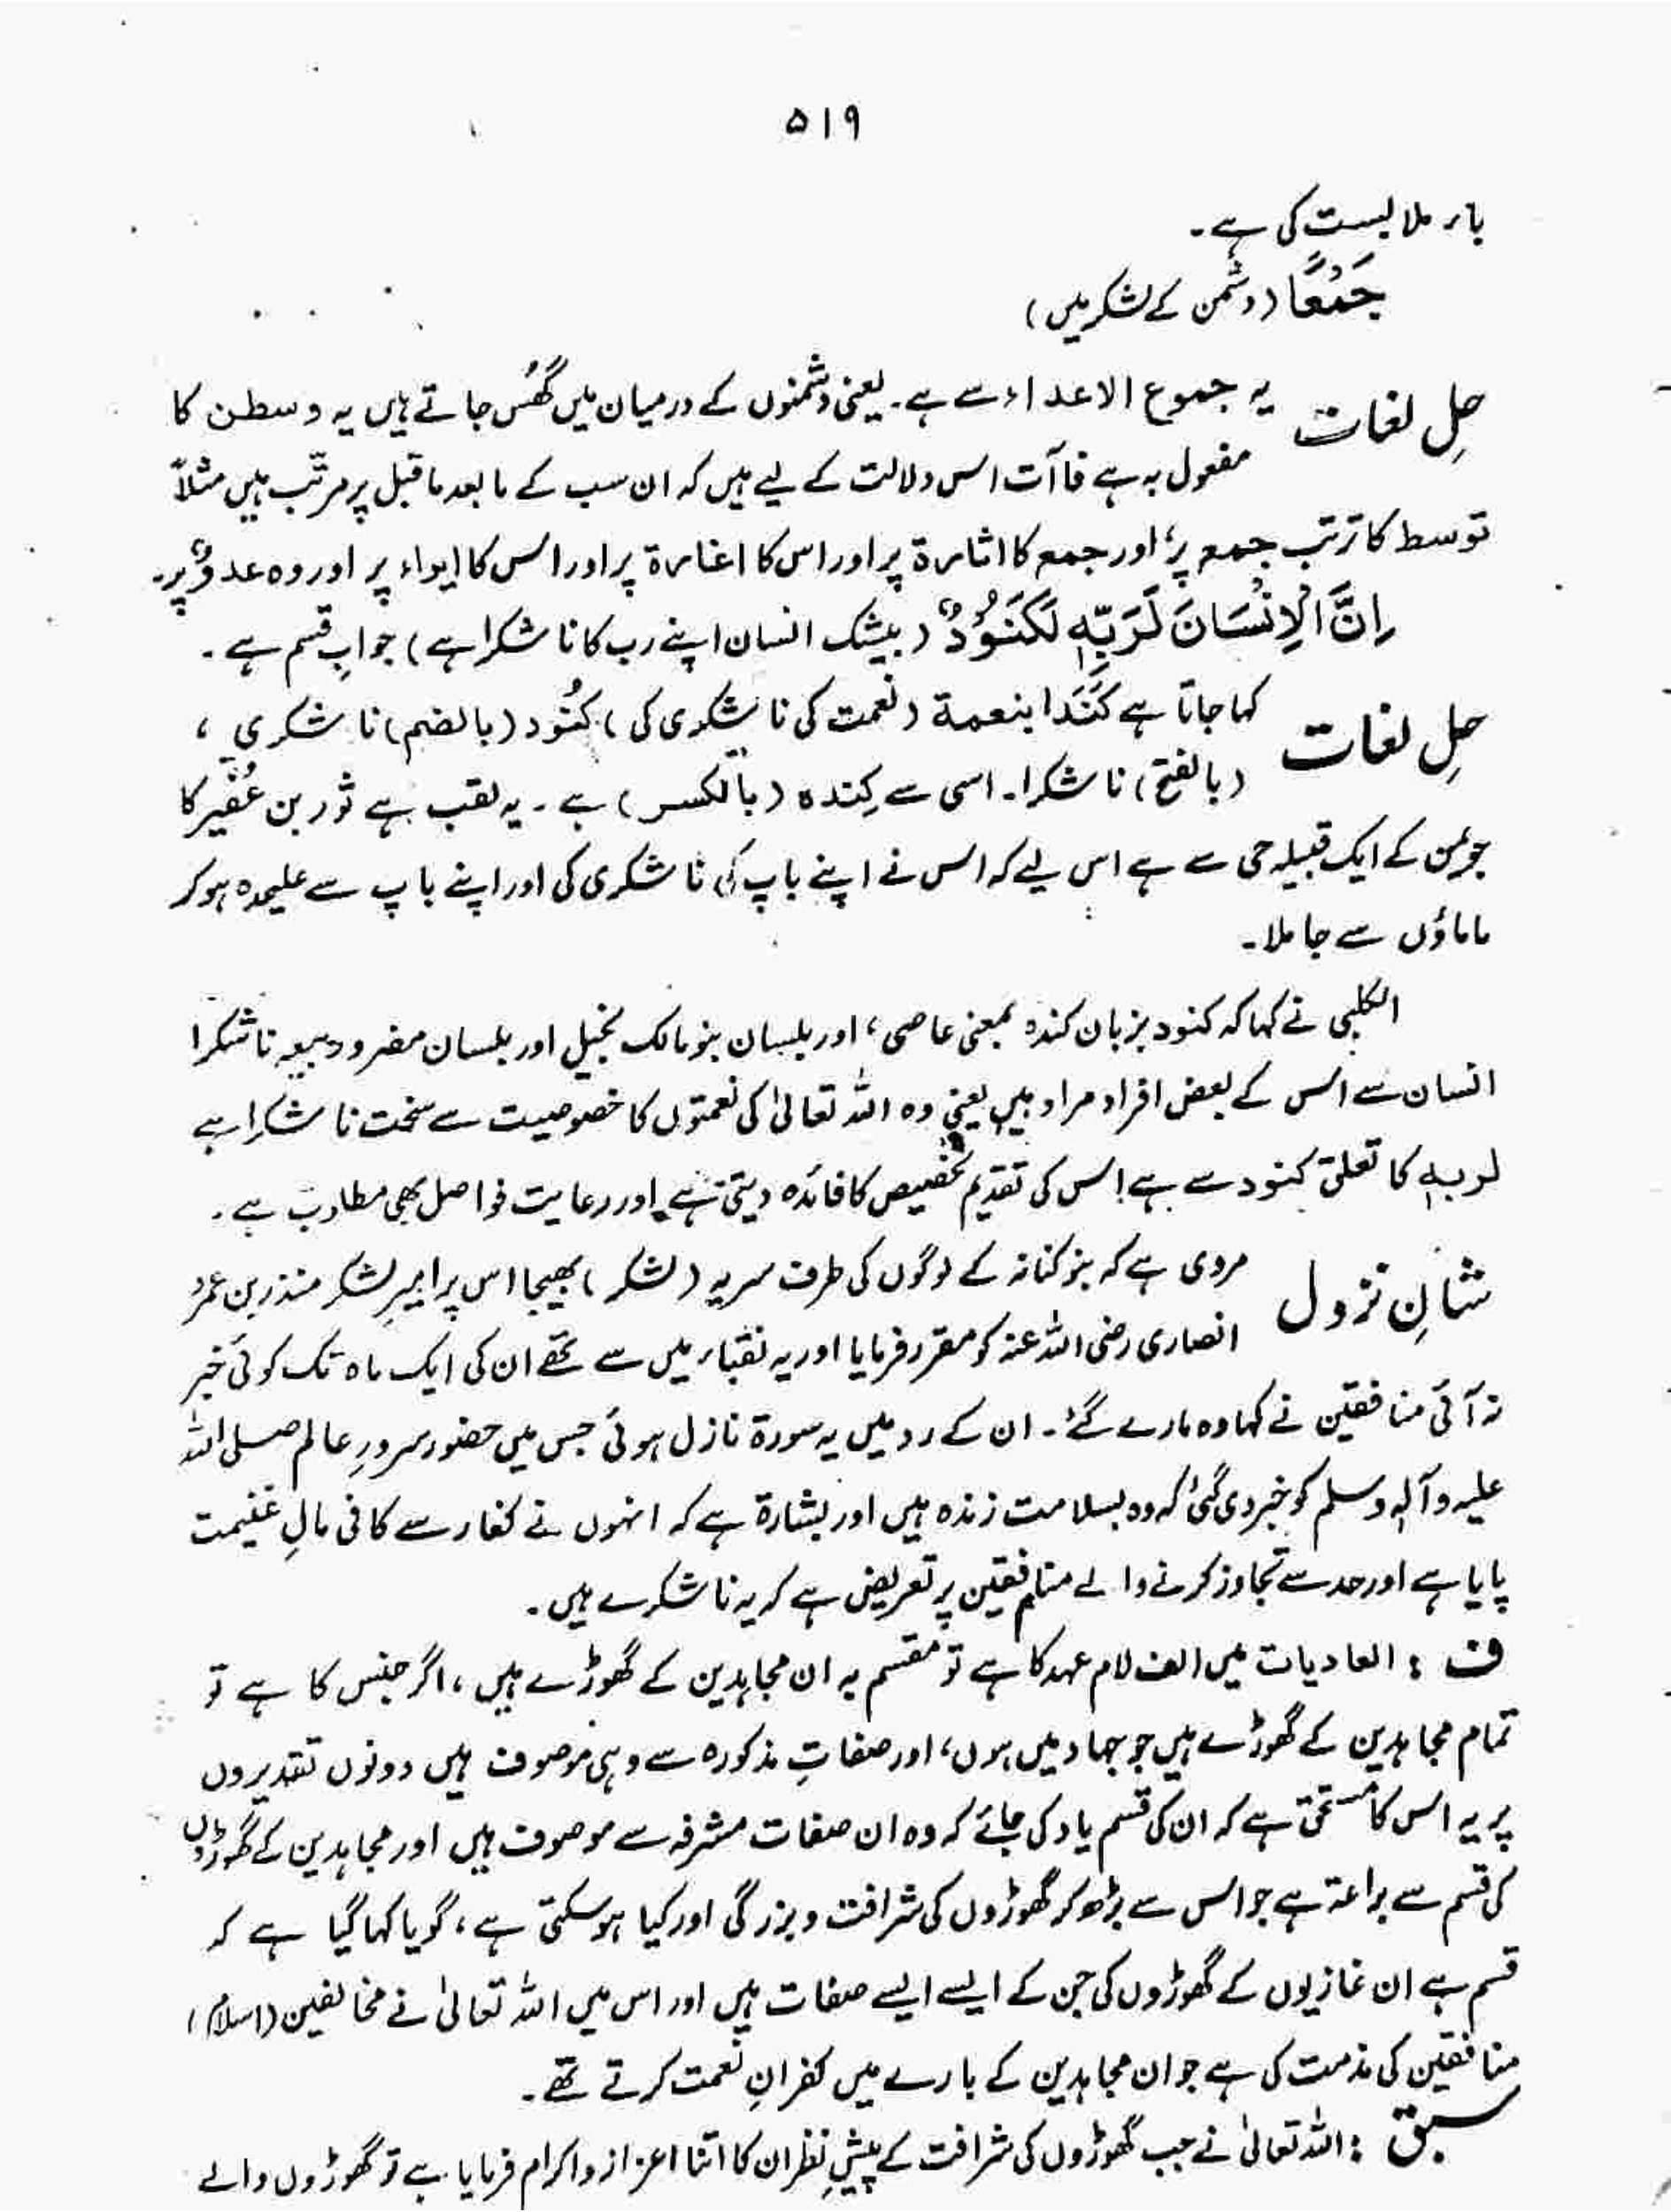 ۵۱۹
باء ملابست کی ہے۔
جَمْعًا (دشمن کے لشکر میں)
حلِ لغات یہ جموع الاعداء سے ہے۔ یعنی دشمنوں کے درمیان میں گھُس جاتے ہیں یہ وسطن کا
مفعول بہ ہے فاآت اس دلالت کے لیے ہیں کہ ان سب کے مابعد ماقبل پر مرتّب ہیں مثلاً
توسط کا ترتب جمع پر، اور جمع کا اثارۃ پر اور اس کا اغارۃ پر اور اس کا ایراء پر اور وہ عدوٌ پر۔
اِنَّ الْاِنْسَانَ لِرَبِّہٖ لَکَنُوْدٌ (بیشک انسان اپنے رب کا ناشکرا ہے) جوابِ قسم ہے۔
حلِ لغات کہا جاتا ہے کَنَدَ النعمة (نعمت کی ناشکری کی) کنُود (بالضم) ناشکری،
(بالفتح) ناشکرا۔ اسی سے کِندہ (بالکسر) ہے۔ یہ لقب ہے ثور بن عُفَیر کا
جو یمن کے ایک قبیلہ حی سے ہے اس لیے کہ اس نے اپنے باپ کی ناشکری کی اور اپنے باپ سے علیحدہ ہو کر
ماماؤں سے جا ملا۔
الکلبی نے کہا کہ کنود بزبان کندہ بمعنی عاصی، اور بلسان بنو مالک بخیل اور بلسان مضر و ربیعہ ناشکرا
انسان سے اس کے بعض افراد مراد ہیں یعنی وہ اللہ تعالیٰ کی نعمتوں کا خصوصیت سے سخت ناشکرا ہے
لربہٖ کا تعلق کنود سے ہے اس کی تقدیم تخصیص کا فائدہ دیتی ہے اور رعایت فواصل بھی مطلوب ہے۔
شانِ نزول مروی ہے کہ بنو کنانہ کے لوگوں کی طرف سریہ (لشکر) بھیجا اس پر امیرِ لشکر منذر بن عمرو
انصاری رضی اللہ عنہ کو مقرر فرمایا اور یہ نقباء میں سے تھے ان کی ایک ماہ تک کوئی خبر
نہ آئی منافقین نے کہا وہ مارے گئے۔ ان کے رد میں یہ سورۃ نازل ہوئی جس میں حضور سرورِ عالم صلی اللہ
علیہ وآلہٖ وسلم کو خبر دی گئی کہ وہ بسلامت زندہ ہیں اور بشارۃ ہے کہ انہوں نے کفار سے کافی مالِ غنیمت
پایا ہے اور حد سے تجاوز کرنے والے منافقین پر تعریض ہے کہ یہ ناشکرے ہیں۔
ف : العادیات میں الف لام عہد کا ہے تو مقسم بہ ان مجاہدین کے گھوڑے ہیں، اگر جنس کا ہے تو
تمام مجاہدین کے گھوڑے ہیں جو جہاد میں ہوں، اور صفاتِ مذکورہ سے وہی موصوف ہیں دونوں تقدیروں
پر یہ اس کا مستحق ہے کہ ان کی قسم یاد کی جائے کہ وہ ان صفات مشرفہ سے موصوف ہیں اور مجاہدین کے گھوڑوں
کی قسم سے براعۃ ہے جو اس سے بڑھ کر گھوڑوں کی شرافت و بزرگی اور کیا ہوسکتی ہے، گویا کہا گیا ہے کہ
قسم ہے ان غازیوں کے گھوڑوں کی جن کے ایسے ایسے صفات ہیں اور اس میں اللہ تعالیٰ نے مخالفین (اسلام)
منافقین کی مذمت کی ہے جو ان مجاہدین کے بارے میں کفرانِ نعمت کرتے تھے۔
سبق : اللہ تعالیٰ نے جب گھوڑوں کی شرافت کے پیشِ نظر ان کا اتنا اعزاز و اکرام فرمایا ہے تو گھوڑوں والے